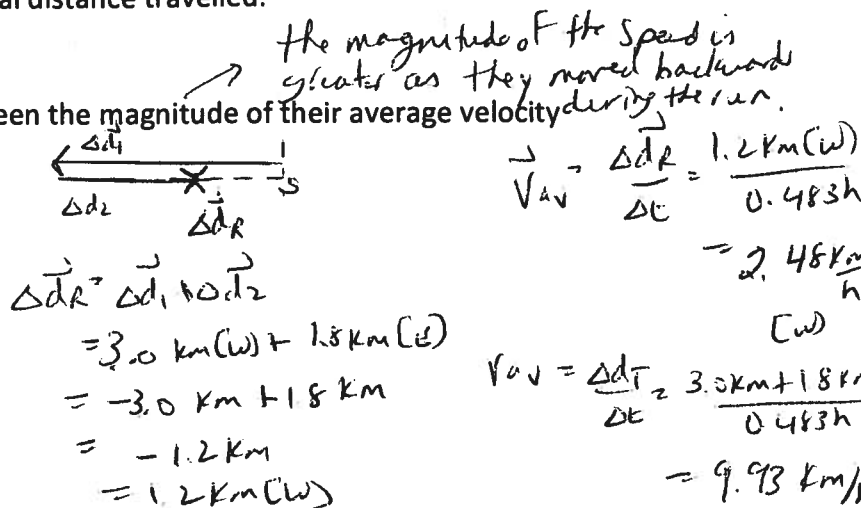 al distance travelled.
the magnitude of the speed is
greater as they moved backwards
during the run.
een the magnitude of their average velocity
Δd⃗₁
S
Δd₂
Δd⃗R
Δd⃗R = Δd⃗₁ + Δd⃗₂
= 3.0 km (W) + 1.8 km [E)
= -3.0 km + 1.8 km
= -1.2 km
= 1.2 km (W)
V⃗av = Δd⃗R / Δt = 1.2 km (W) / 0.483h
= 2.48 km/h
(W)
Vav = ΔdT / Δt = 3.0km + 1.8 k / 0.483h
= 9.93 km/